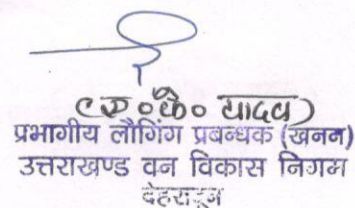 (ए०के० यादव)
प्रभागीय लौगिंग प्रबन्धक (खनन)
उत्तराखण्ड वन विकास निगम
देहरादून